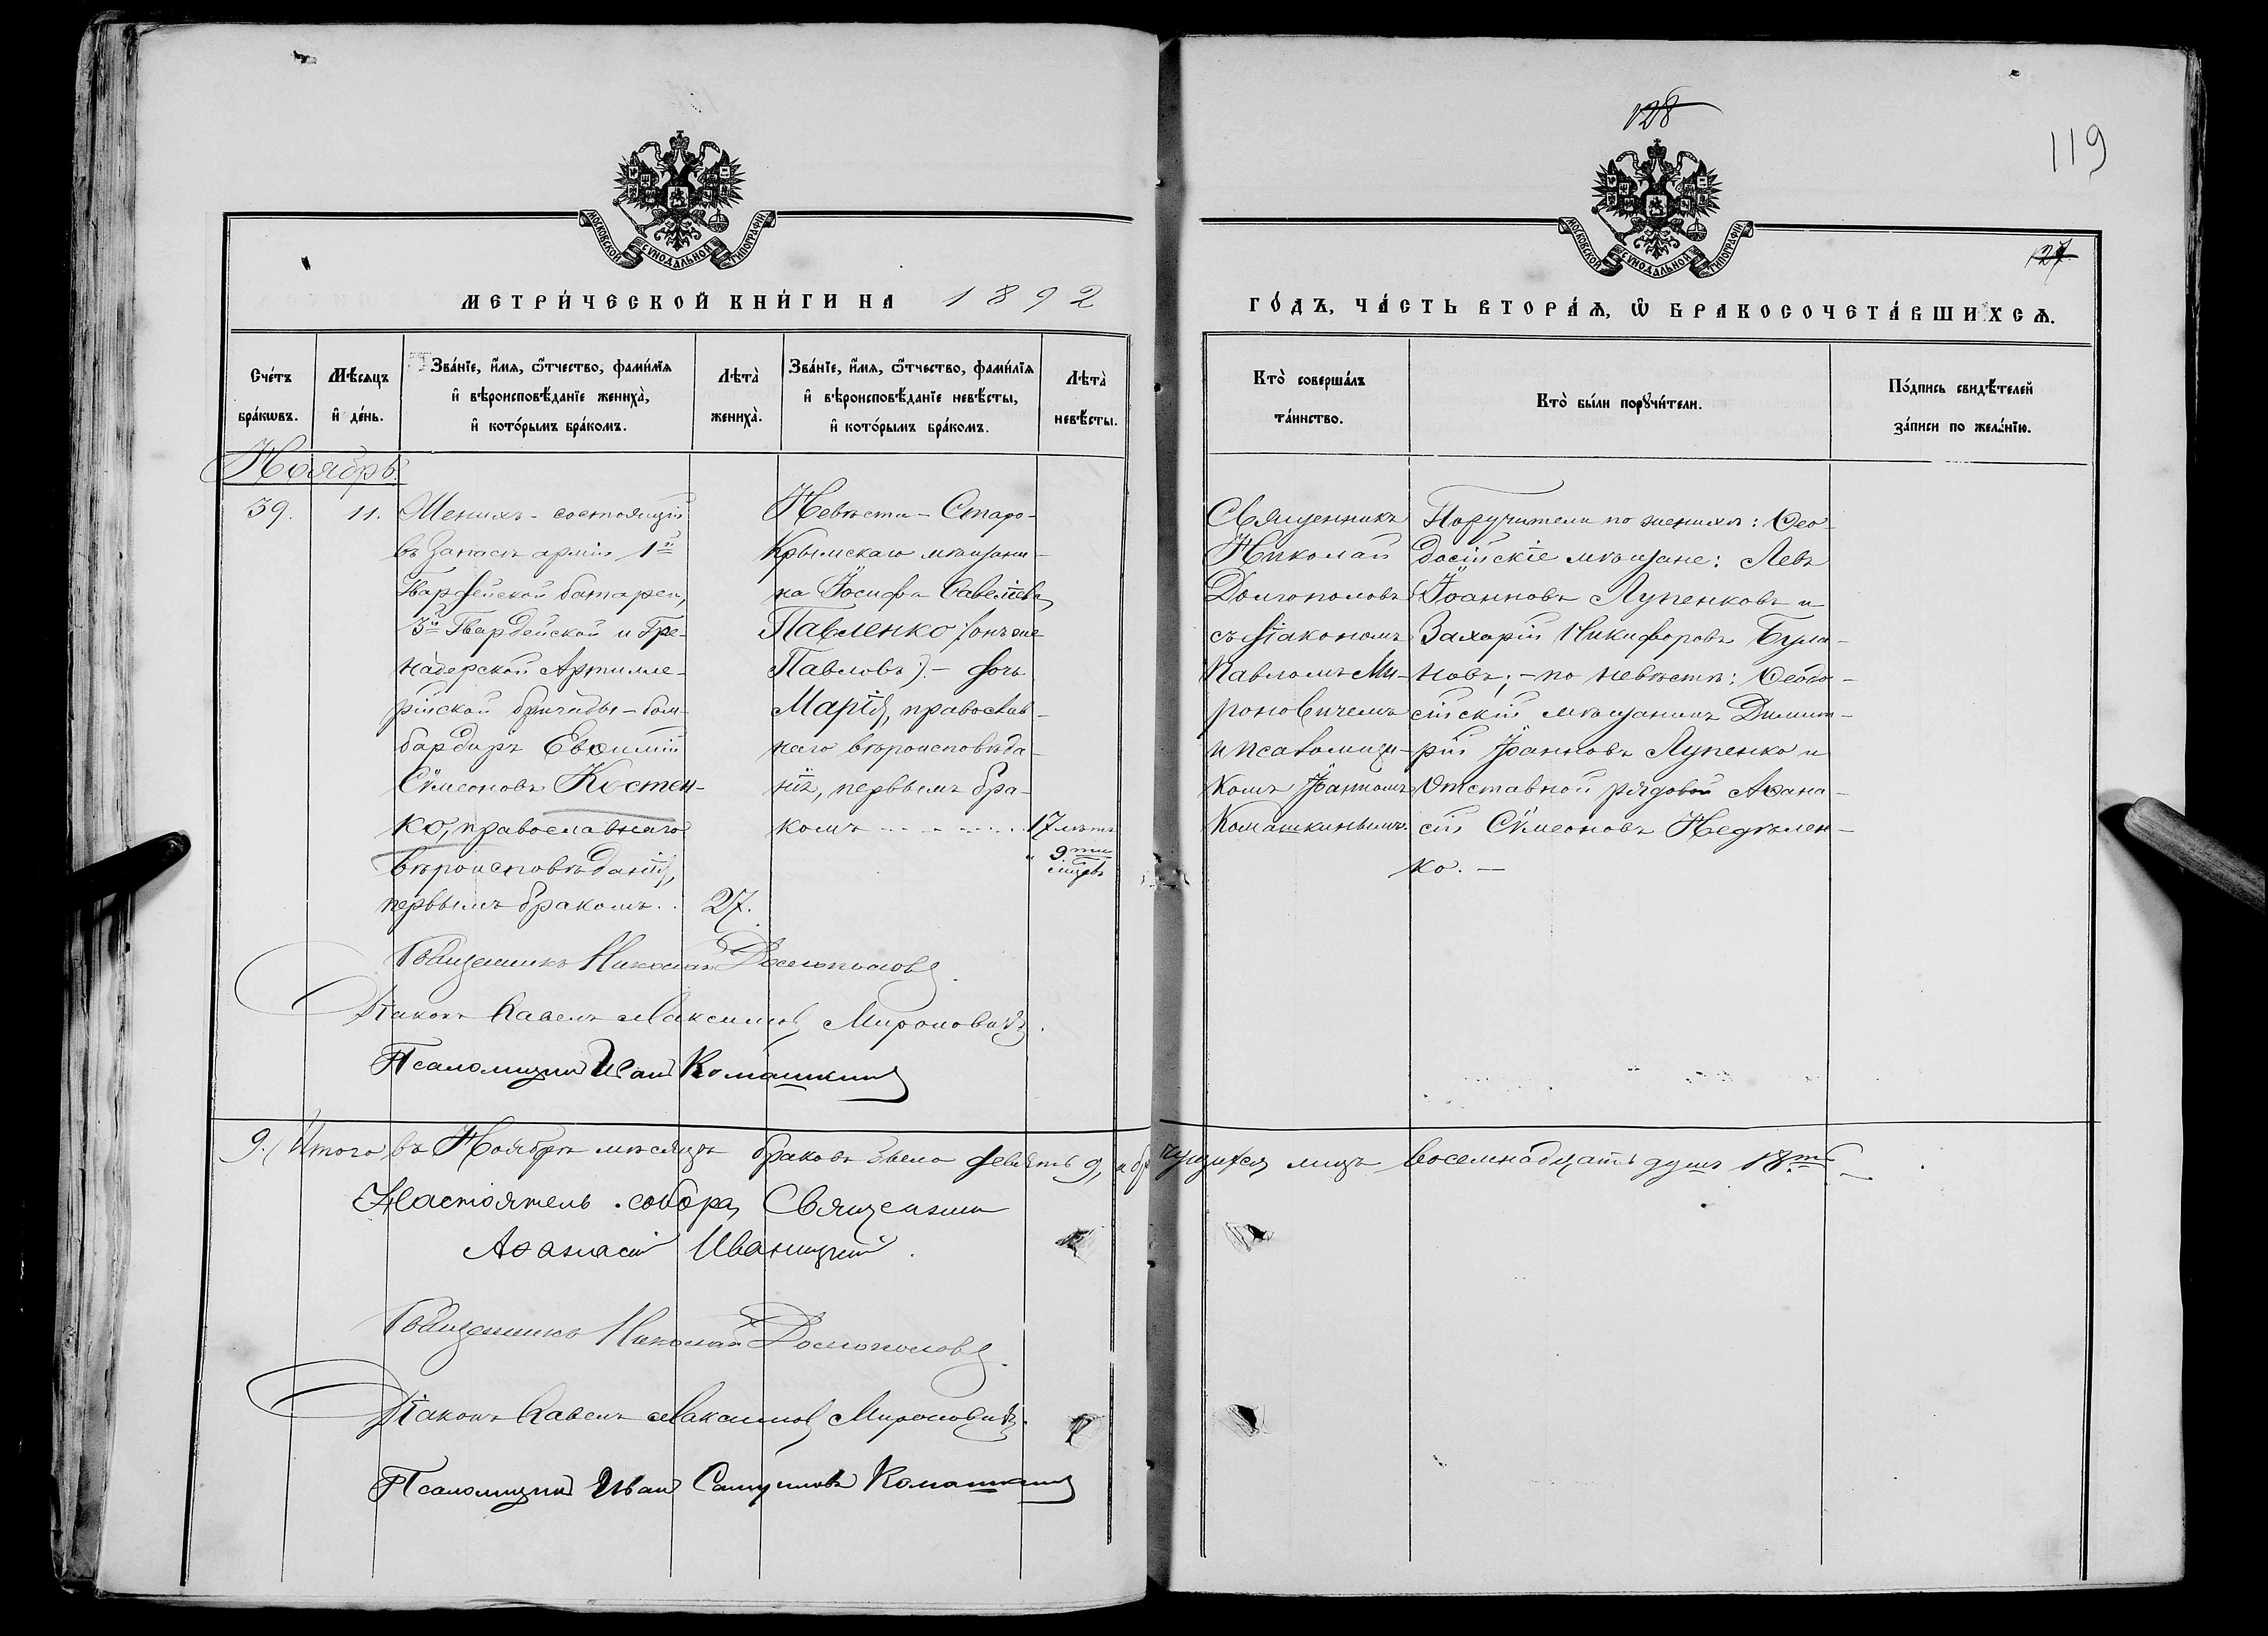 128
119
127.
МОСКОВСКОЙ СѴНОДАЛЬНОЙ ТИПОГРАФІИ
МОСКОВСКОЙ СѴНОДАЛЬНОЙ ТИПОГРАФІИ
МЕТРИ́ЧЕСКОЙ КНИ́ГИ НА 1892
ГО́ДЪ, ЧА́СТЬ ВТОРА́Ѧ, Ѡ҆ БРАКОСОЧЕТА́ВШИХСѦ.
Сче́тъ
бра́кѡвъ.
Мѣ́сѧцъ
и҆ де́нь.
Зва́нїе, и҆́мѧ, ѻ҆́тчество, фами́лїѧ
и҆ вѣроисповѣ́данїе жениха̀,
и҆ кото́рымъ бра́комъ.
Лѣта̀
жениха̀.
Зва́нїе, и҆́мѧ, ѻ҆́тчество, фами́лїѧ
и҆ вѣроисповѣ́данїе невѣ́сты,
и҆ кото́рымъ бра́комъ.
Лѣта̀
невѣ́сты.
Кто̀ соверша́лъ
та́инство.
Кто̀ бы́ли порꙋчи́тели.
По́дпись свидѣ́телей
за́писи по жела́нїю.
Ноябрь.
39.
11.
Женихъ - состоящій
въ Запасѣ арміи 1й
Гвардейской батареи,
3й Гвардейской и Гре-
надерской Артилле-
рійской бригады - бом-
бардиръ Евѳимій
Сѵмеоновъ Костен-
ко, православнаго
вѣроисповѣданія,
первымъ бракомъ.. 27.
Невѣста - Старо-
Крымскаго мѣщани-
на Іосифа Савелiева
Павленко (онъ же
Павловъ). - дочь
Марія, православ-
наго вѣроисповѣда-
нія, первымъ бра-
комъ - - - - - - 17 лѣтъ
9ти
мѣсцевъ
Священникъ
Николай
Долгополовъ
съ діакономъ
Павломъ Ми-
роновичемъ
и псаломщи-
комъ Іоанномъ
Комашкинымъ.
Поручители по женихѣ: Ѳео-
досійскіе мѣщане: Левъ
Іоанновъ Лупенковъ и
Захарій Никифоровъ Була-
новъ; - по невѣстѣ: Ѳеодо-
сійскій мѣщанинъ Димит-
рій Іоанновъ Лупенко и
Отставной рядовой Аѳана-
сій Сѵмеоновъ Недѣлен-
ко. -
Священникъ Николай Долгополовъ.
Діаконъ Павелъ Максимовъ Мироновичъ.
Псаломщикъ Иванъ Комашкинъ
9. Итого въ Ноябрѣ мѣсяцѣ браковъ было девять 9, а бра чущихся лицъ восемнадцать душъ 18ть
Настоятель собора, Священникъ
Аѳанасій Иваницкій.
Священникъ Николай Долгополовъ.
Діаконъ Павелъ Максимовъ Мироновичъ.
Псаломщикъ Иванъ Самуиловъ Комашкинъ